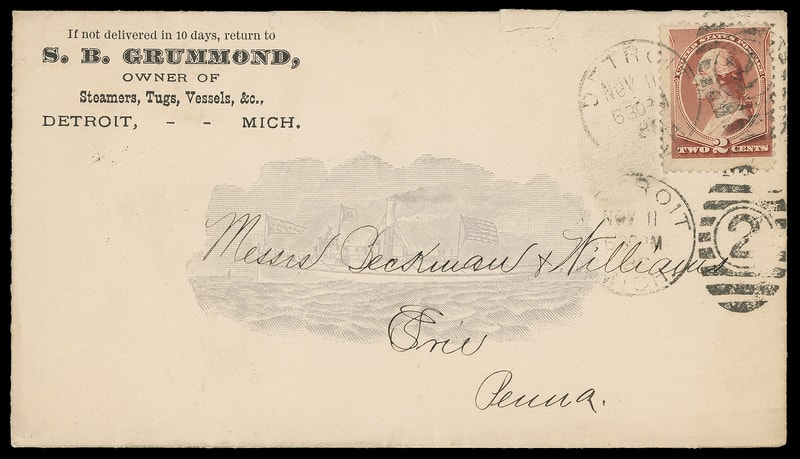 If not delivered in 10 days, return to
S. B. GRUMMOND,
OWNER OF
Steamers, Tugs, Vessels, &c.,
DETROIT, - - MICH.
UNITED STATES POSTAGE
TWO 2 CENTS
DETROIT
NOV 11
630
DETROIT
NOV 11
MICH
2
Messrs Beckman & Williams
Erie
Penna.